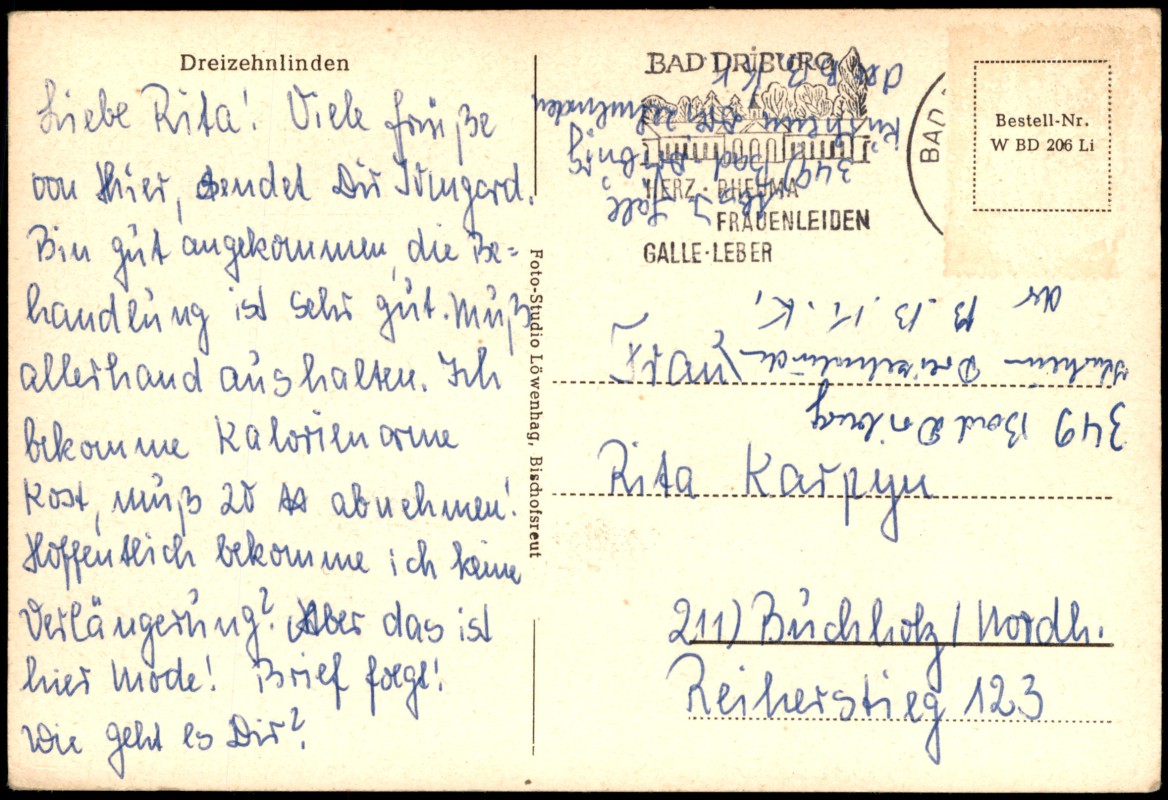 Dreizehnlinden
Liebe Rita! Viele Grüße
von Hier, sendet Dir Irmgard.
Bin gut angekommen, die Be=
handlung ist sehr gut. Muß
allerhand aushalten. Ich
bekomme Kalorienarme
Kost, muß 20 ℔ abnehmen!
Hoffentlich bekomme ich keine
Verlängerung? Aber das ist
hier Mode! Brief folgt!
Wie geht es Dir?
Foto-Studio Löwenhag, Bischofsreut
BAD DRIBURG
HERZ · RHEUMA
FRAUENLEIDEN
GALLE · LEBER
BAD
Bestell-Nr.
W BD 206 Li
349 Bad Driburg
Kurheim Dreizehnlinden
der B.B.
Frau
Rita Karpyn
211) Buchholz / Nordh.
Reiherstieg 123